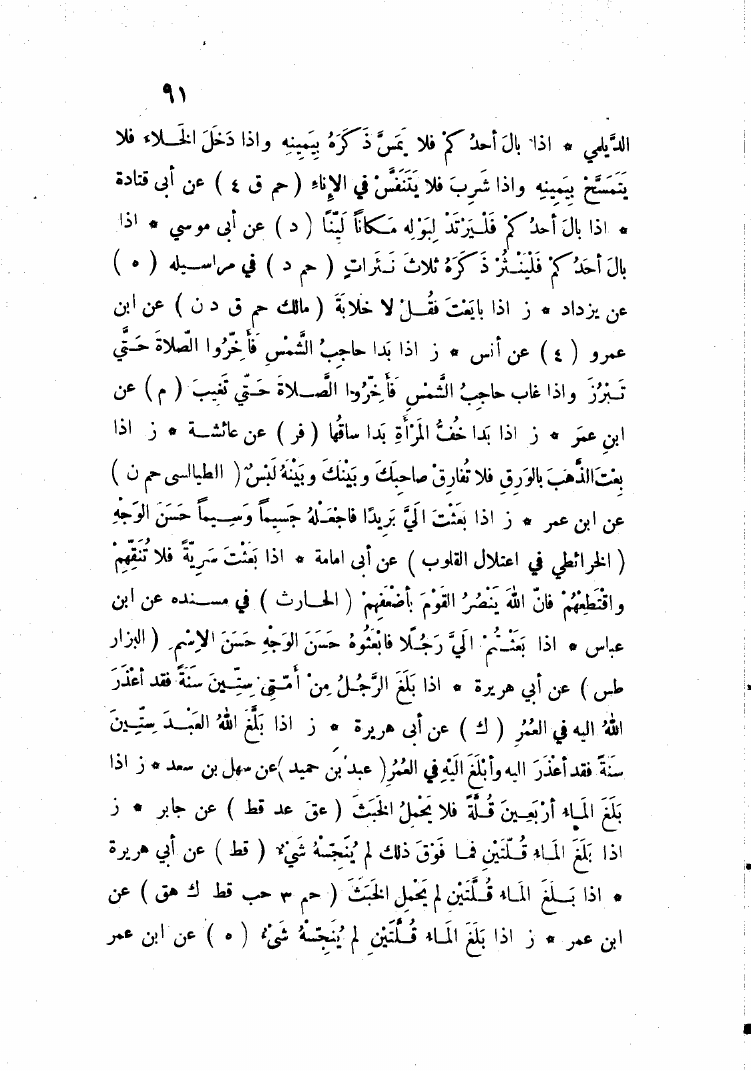 ٩١
الدَّيلمي * اذا بالَ أحدُكمْ فلا يَمَسَّ ذَكَرَهُ بِيَمينِهِ واذا دَخَلَ الخَلاءَ فلا
يَتَمَسَّحْ بِيَمِينِهِ واذا شَرِبَ فلا يَتَنَفَّسْ في الإِناءِ ( حم ق ٤ ) عن أبى قتادة
* اذا بالَ أحدُكمْ فَلْيَرْتَدْ لِبَوْلِهِ مَكاناً لَيِّنًا ( د ) عن أبى موسي * اذا
بالَ أحَدُكمْ فَلْيَنْثُرْ ذَكَرَهُ ثلاثَ نَثَراتٍ ( حم د ) في مراسيله ( ه )
عن يزداد * ز اذا بايَعْتَ فقُلْ لا خلابَةَ ( مالك حم ق د ن ) عن ابن
عمرو ( ٤ ) عن أنس * ز اذا بَدا حاجِبُ الشَّمْسِ فَأَخِّرُوا الصَّلاةَ حَتَّي
تَبْرُزَ واذا غاب حاجِبُ الشَّمْسِ فَأَخِّرُوا الصَّلاةَ حَتَّي تَغيبَ ( م ) عن
ابنِ عمَرَ * ز اذا بَدَا خُفُّ المَرْأةِ بَدا ساقُها ( فر ) عن عائشة * ز اذا
بِعْتَ الذَّهَبَ بالوَرِقِ فلا تُفارِقْ صاحِبَكَ وبَيْنَكَ وبَيْنَهُ لَبْسٌ ( الطيالسى حم ن )
عن ابن عمر * ز اذا بَعَثْتَ اليَّ بَرِيدًا فاجعَلْهُ جَسِيماً وَسِيماً حَسَنَ الوَجْهِ
( الخرائطي في اعتلال القلوب ) عن أبى امامة * اذا بَعَثْتَ سَرِيّةً فلا تُنَقِّهِمْ
واقْتَطِعْهُمْ فانَّ اللهَ يَنْصُرُ القَوْمَ بأضْعَفِهِمْ ( الحارث ) في مسنده عن ابن
عباس * اذا بَعَثْتُمْ الَيَّ رَجُلًا فابْعَثُوهُ حَسَنَ الوَجْهِ حَسَنَ الاِسْمِ ( البزار
طس ) عن أبي هريرة * اذا بَلَغَ الرَّجُلُ مِنْ أمَّتِى سِتِّينَ سَنَةً فقد أعْذَرَ
اللهُ اليه في العُمُرِ ( ك ) عن أبى هريرة * ز اذا بَلَّغَ اللهُ العَبْدَ سِتِّينَ
سَنَةً فقد أعذَرَ اليه وأبْلَغَ الَيْهِ في العُمُرِ ( عبد بن حميد ) عن سهل بن سعد * ز اذا
بَلَغَ المَاءُ أرْبَعِينَ قُلَّةً فلا يَحْمِلُ الخَبَثَ ( عق عد قط ) عن جابر * ز
اذا بَلَغَ المَاءُ قُلّتَيْنِ فمَا فَوْقَ ذلك لم يُنَجِّسْهُ شَيْءٌ ( قط ) عن أبي هريرة
* اذا بَلَغَ المَاءُ قُلَّتَيْنِ لم يَحْمِلِ الخَبَثَ ( حم ٣ حب قط ك هق ) عن
ابن عمر * ز اذا بَلَغَ المَاءُ قُلَّتَيْنِ لم يُنَجِّسْهُ شَيْءٌ ( ه ) عن ابن عمر